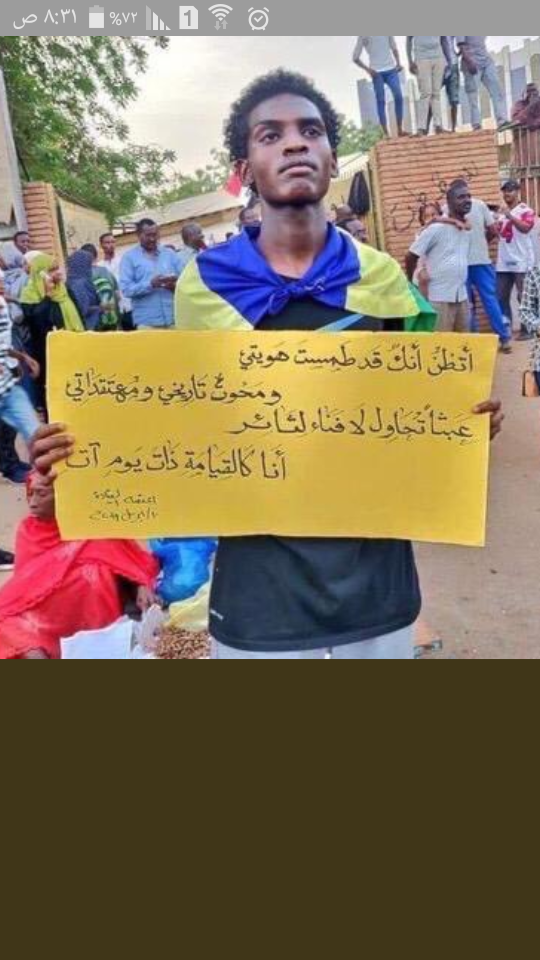 ٨:٣١ ص
%٧٢
1
أتظن أنك قد طمست هويتي
ومحوت تاريخي ومعتقداتي
عبثاً تحاول لا فناء لثائر
أنا كالقيامة ذات يوم آت